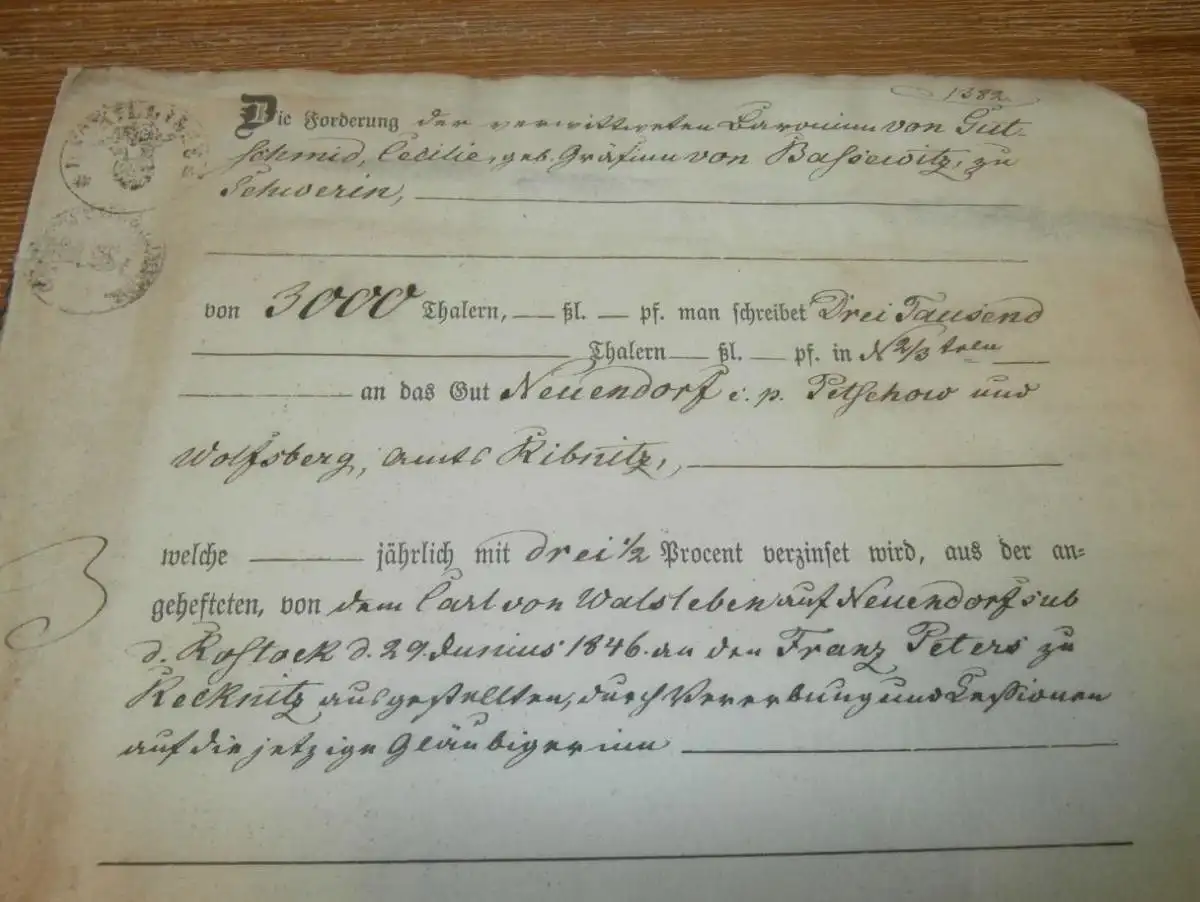 1382
Die Forderung der verwittweten Baroninn von Gut-
schmid, Cecilie, geb. Gräfinn von Bassewitz, zu
Schwerin,
von 3000 Thalern, — ßl. — pf. man schreibet Drei Tausend
Thalern — ßl. — pf. in N 2/3 teln
an das Gut Neuendorf i. p. Petschow und
Wolfsberg, Amts Ribnitz,
welche jährlich mit drei 1/2 Procent verzinset wird, aus der an-
3
gehefteten, von dem Carl von Walsleben auf Neuendorf sub
d. Rostock d. 29. Junius 1846. an den Franz Peters zu
Recknitz ausgestellten, durch Vererbung und Cessionen
auf die jetzige Gläubigerinn